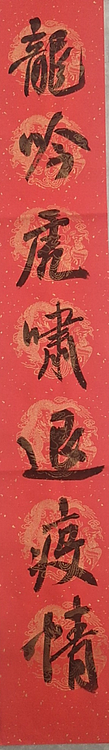 龍吟虎嘯退疫情